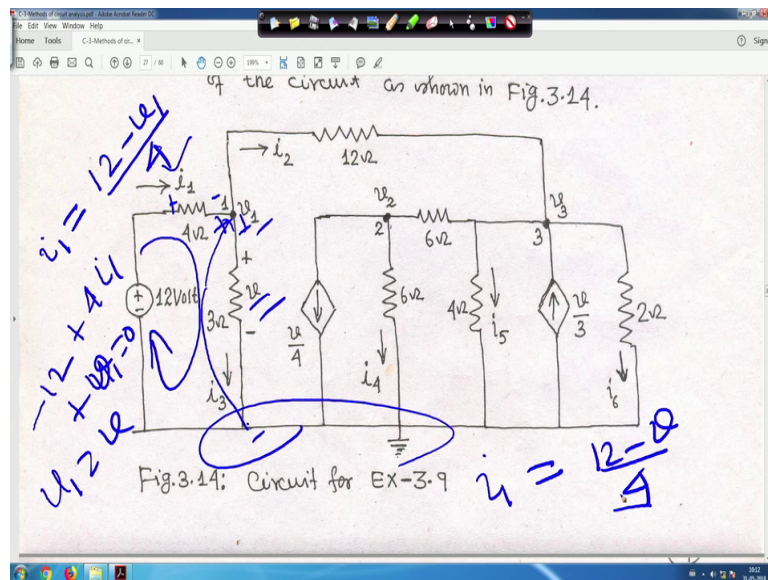 C-3-Methods of circuit analysis.pdf - Adobe Acrobat Reader DC
File Edit View Window Help
Home Tools C-3-Methods of cir... × Sign
27 / 60 199%
of the circuit as shown in Fig.3.14.
i₁ = (12-v₁)/4
→ i₂
12Ω
→ i₁
+ - 1 v₁
4Ω
v₂
2
6Ω
v₃
3
-12 + 4i₁
+ v₁=0
v₁ = v
+
-
12Volt
3Ω
+
v
-
i₃
v/4
6Ω
i₄
4Ω
i₅
v/3
2Ω
i₆
Fig.3.14: Circuit for EX-3.9
i₁ = (12-v)/4
10:12